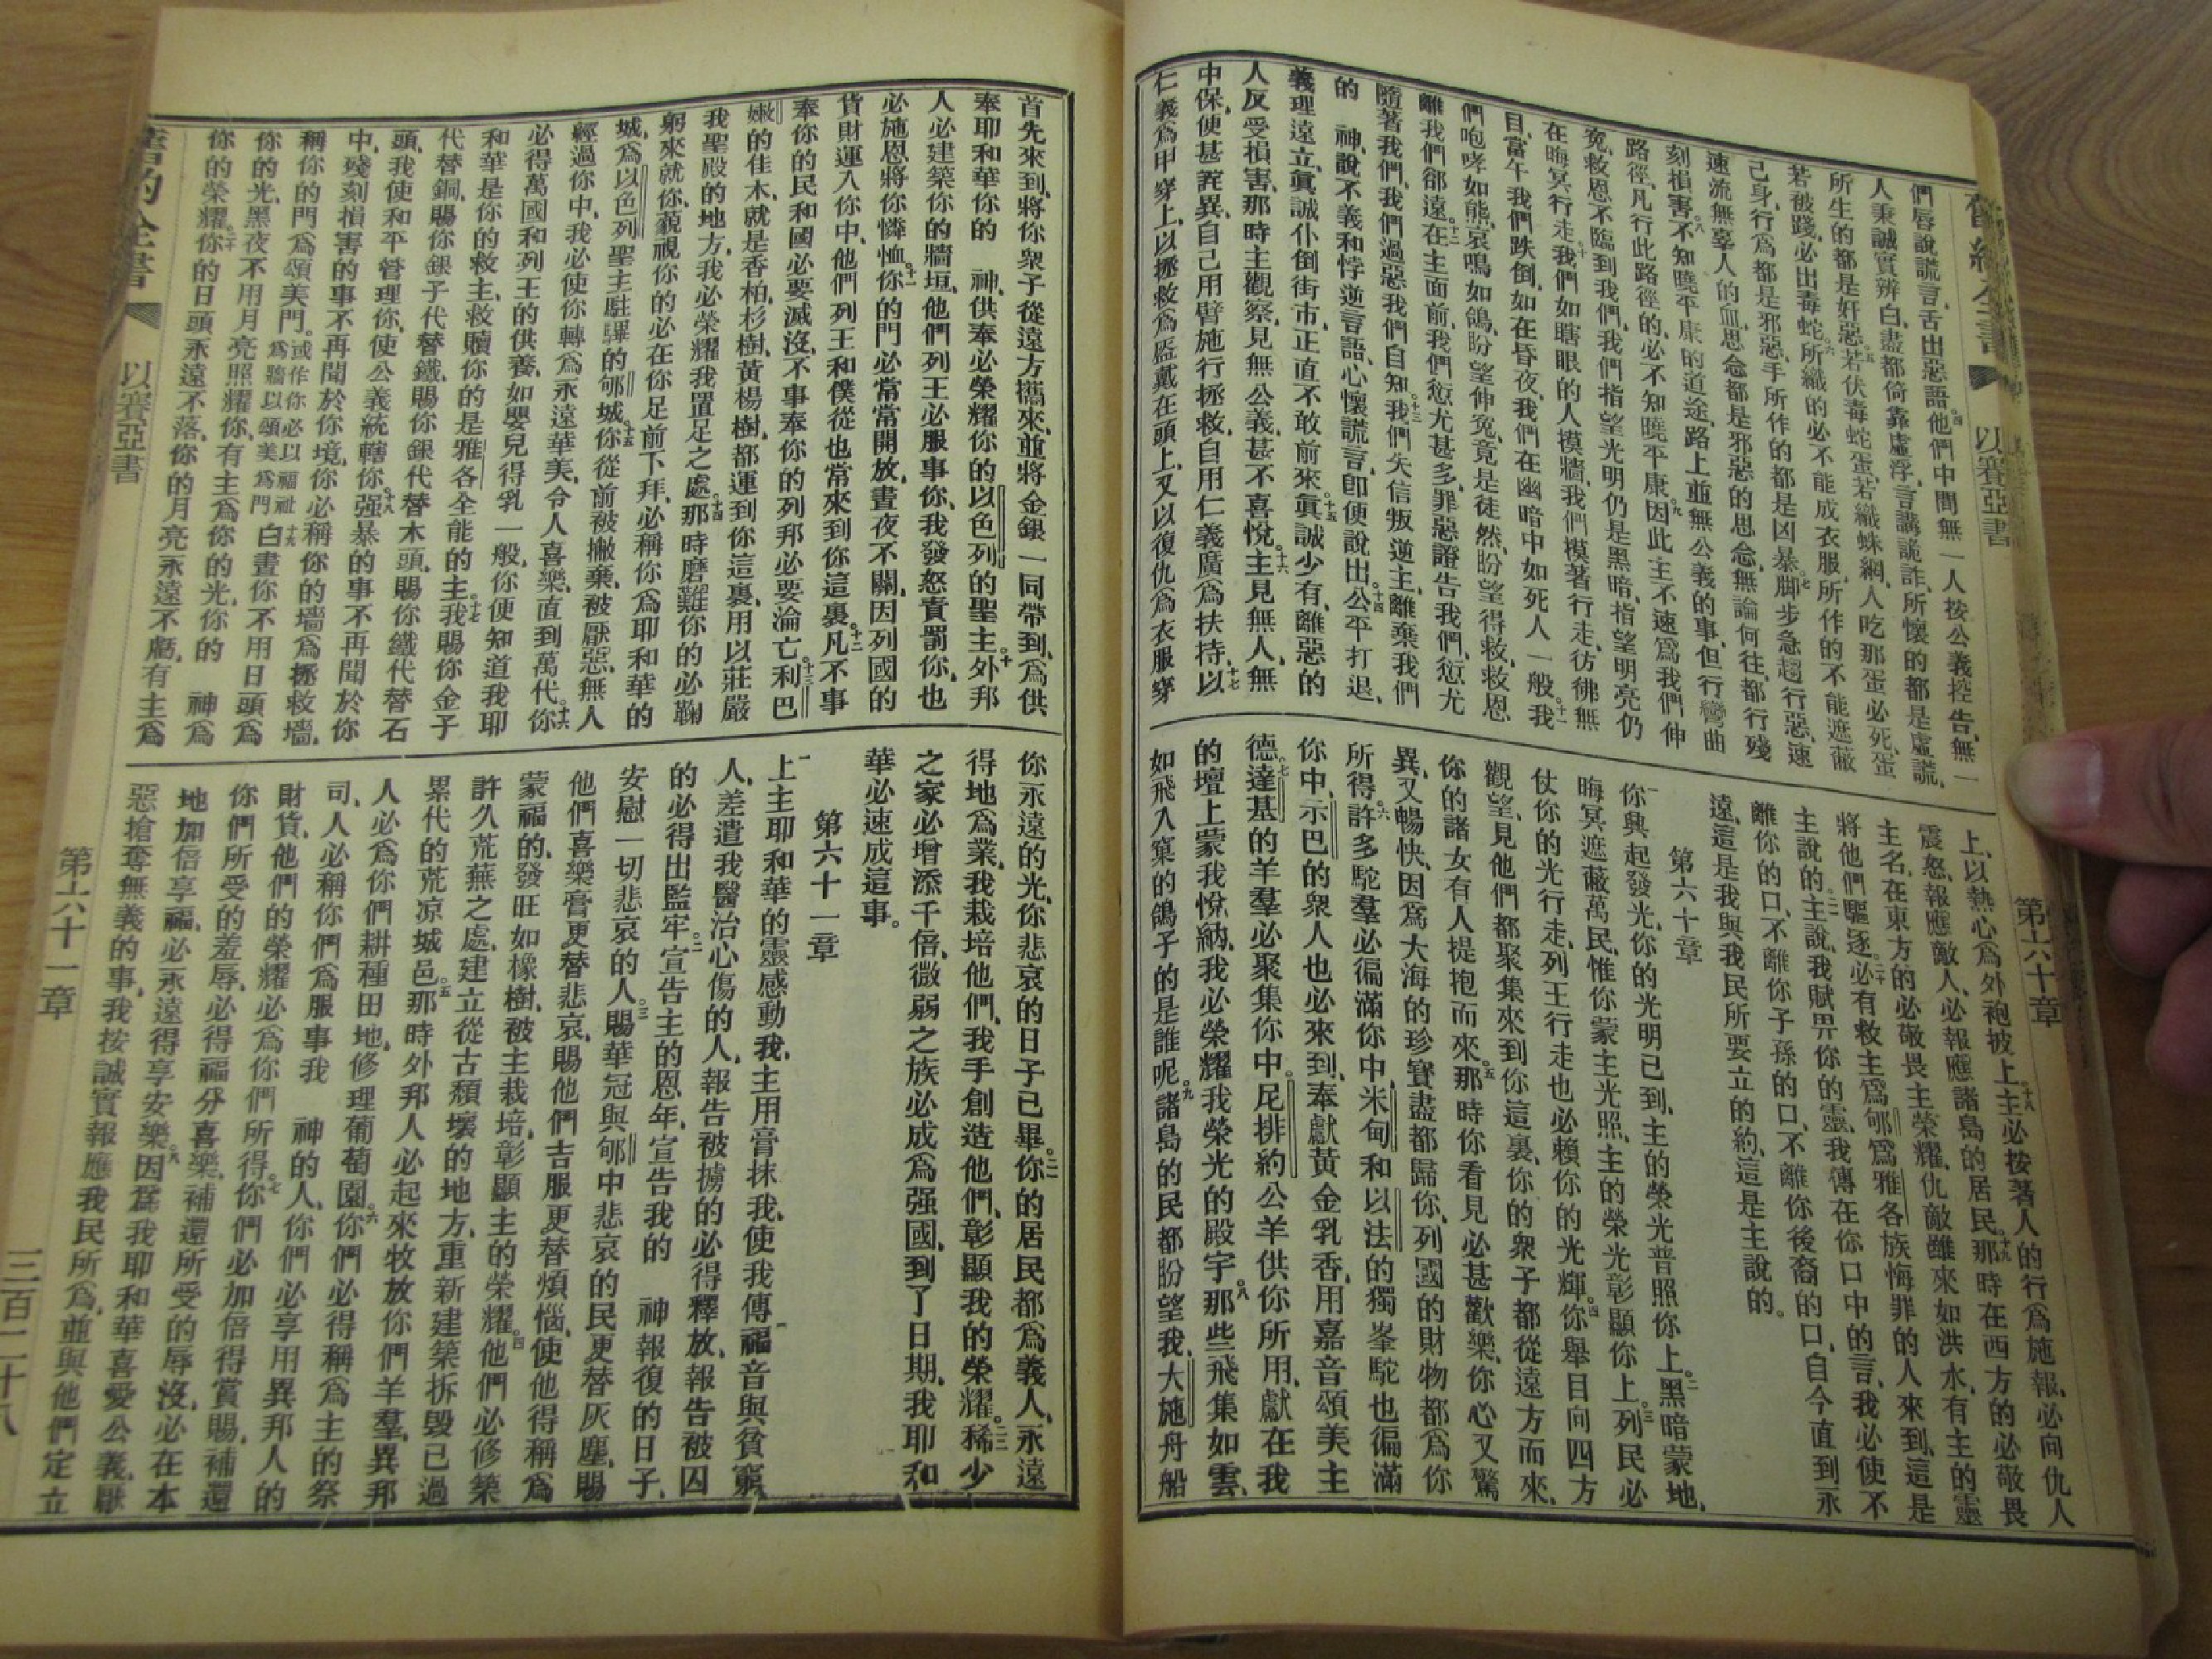 以賽亞書
第六十章
們唇說謊言、舌出惡語。四他們中間無一人按公義控告、無一
人秉誠實辨白、盡都倚靠虛浮、言講詭詐、所懷的都是虛謊、
所生的都是奸惡。五若伏毒蛇蛋、若織蛛網、人吃那蛋必死、蛋
若被踐、必出毒蛇。六所織的必不能成衣服、所作的不能遮蔽
己身、行爲都是邪惡、手所作的都是凶暴。七脚步急趨行惡、速
速流無辜人的血、思念都是邪惡的思念、無論何往、都行殘
刻損害。八不知曉平康的道途、路上並無公義的事、但行彎曲
路徑、凡行此路徑的、必不知曉平康。九因此主不速爲我們伸
冤、救恩不臨到我們、我們指望光明仍是黑暗、指望明亮仍
在晦冥行走。十我們如瞎眼的人摸牆、我們摸著行走、彷彿無
目、當午我們跌倒、如在昏夜、我們在幽暗中如死人一般。十一我
們咆哮如熊、哀鳴如鴿、盼望伸冤、竟是徒然、盼望得救、救恩
離我們卻遠。十二在主面前、我們愆尤甚多、罪惡證告我們、愆尤
隨著我們、我們過惡我們自知。十三我們失信叛逆主、離棄我們
的　神、說不義和悖逆言語、心懷謊言、卽便說出。十四公平打退、
義理遠立、眞誠仆倒街市、正直不敢前來。十五眞誠少有、離惡的
人反受損害、那時主觀察、見無公義、甚不喜悅。十六主見無人、無
中保、便甚詫異、自己用臂施行拯救、自用仁義廣爲扶持、十七以
仁義爲甲穿上、以拯救爲盔戴在頭上、又以復仇爲衣服穿
上、以熱心爲外袍披上。十八主必按著人的行爲施報、必向仇人
震怒、報應敵人、必報應諸島的居民。十九那時在西方的必敬畏
主名、在東方的必敬畏主榮耀、仇敵雖來如洪水、有主的靈
將他們驅逐。二十必有救主爲郇爲雅各族悔罪的人來到、這是
主說的。二一主說、我賦畀你的靈、我傳在你口中的言、我必使不
離你的口、不離你子孫的口、不離你後裔的口、自今直到永
遠、這是我與我民所要立的約、這是主說的。
第六十章
一你興起發光、你的光明已到、主的榮光普照你上。二黑暗蒙地、
晦冥遮蔽萬民、惟你蒙主光照、主的榮光彰顯你上。三列民必
仗你的光行走、列王行走也必賴你的光輝。四你舉目向四方
觀望、見他們都聚集來到你這裏、你的衆子都從遠方而來、
你的諸女有人提抱而來。五那時你看見必甚歡樂、你心又驚
異、又暢快、因爲大海的珍寶盡都歸你、列國的財物都爲你
所得。六許多駝羣必徧滿你中、米甸和以法的獨峯駝也徧滿
你中、示巴的衆人也必來到、奉獻黃金乳香、用嘉音頌美主
德。七達基的羊羣必聚集你中、尼排約公羊供你所用、獻在我
的壇上蒙我悅納、我必榮耀我榮光的殿宇。八那些飛集如雲、
如飛入窠的鴿子的是誰呢。九諸島的民都盼望我、大施舟船
首先來到、將你衆子從遠方攜來、並將金銀一同帶到、爲供
奉耶和華你的　神、供奉必榮耀你的以色列的聖主。十外邦
人必建築你的牆垣、他們列王必服事你、我發怒責罰你、也
必施恩將你憐恤。十一你的門必常常開放、晝夜不關、因列國的
貨財運入你中、他們列王和僕從也常來到你這裏。十二凡不事
奉你的民和國必要滅沒、不事奉你的列邦必要淪亡。十三利巴
嫩的佳木、就是香柏、杉樹、黃楊樹、都運到你這裏、用以莊嚴
我聖殿的地方、我必榮耀我置足之處。十四那時磨難你的必鞠
躬來就你、藐視你的必在你足前下拜、必稱你爲耶和華的
城、爲以色列聖主駐驆的郇城。十五你從前被撇棄、被厭惡、無人
經過你中、我必使你轉爲永遠華美、令人喜樂、直到萬代。十六你
必得萬國和列王的供養、如嬰兒得乳一般、你便知道我耶
和華是你的救主、救贖你的是雅各全能的主。十七我賜你金子
代替銅、賜你銀子代替鐵、賜你銅代替木頭、賜你鐵代替石
頭、我使和平管理你、使公義統轄你。十八强暴的事不再聞於你
中、殘刻損害的事不再聞於你境、你必稱你的墻爲拯救墻、
稱你的門爲頌美門。或作你必以福祉爲牆以頌美爲門 十九白晝你不用日頭爲
你的光、黑夜不用月亮照耀你、有主爲你的光、你的　神爲
你的榮耀。二十你的日頭永遠不落、你的月亮永遠不虧、有主爲
你永遠的光、你悲哀的日子已畢。二一你的居民都爲義人、永遠
得地爲業、我栽培他們、我手創造他們、彰顯我的榮耀。二二稀少
之家必增添千倍、微弱之族必成爲强國、到了日期、我耶和
華必速成這事。
第六十一章
一上主耶和華的靈感動我、主用膏抹我、使我傳福音與貧窮
人、差遣我醫治心傷的人、報告被擄的必得釋放、報告被囚
的必得出監牢。二宣告主的恩年、宣告我的　神報復的日子、
安慰一切悲哀的人。三賜華冠與郇中悲哀的民更替灰塵、賜
他們喜樂膏更替悲哀、賜他們吉服更替煩惱、使他得稱爲
蒙福的、發旺如橡樹、被主栽培、彰顯主的榮耀。四他們必修築
許久荒蕪之處、建立從古頹壞的地方、重新建築拆毀已過
累代的荒凉城邑。五那時外邦人必起來牧放你們羊羣、異邦
人必爲你們耕種田地、修理葡萄園。六你們必得稱爲主的祭
司、人必稱你們爲服事我　神的人、你們必享用異邦人的
財貨、他們的榮耀必爲你們所得。七你們必加倍得賞賜、補還
你們所受的羞辱、必得福分喜樂、補還所受的辱沒、必在本
地加倍享福、必永遠得享安樂。八因爲我耶和華喜愛公義、厭
惡搶奪無義的事、我按誠實報應我民所爲、並與他們定立
以賽亞書
第六十一章
三百二十八